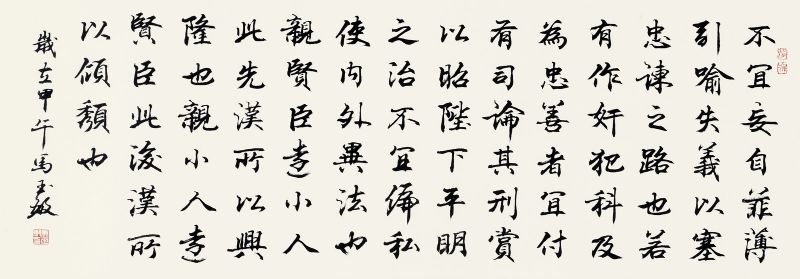 不宜妄自菲薄
引喻失義以塞
忠諫之路也若
有作奸犯科及
為忠善者宜付
有司論其刑賞
以昭陛下平明
之治不宜偏私
使内外異法也
親賢臣遠小人
此先漢所以興
隆也親小人遠
賢臣此後漢所
以傾頹也
歲在甲午馬玉